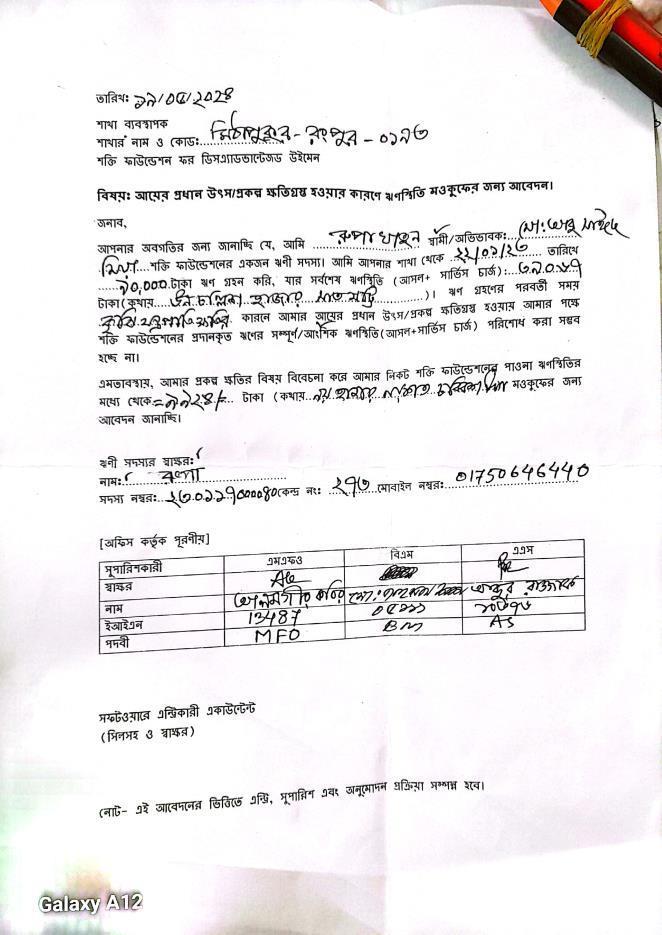 তারিখঃ ১৯/০৫/২০২৪
শাখা ব্যবস্থাপক
শাখার নাম ও কোড:... মিঠাপুকুর - রংপুর - ০১৯৩
শক্তি ফাউন্ডেশন ফর ডিসএ্যাডভান্টেজড উইমেন
বিষয়ঃ আয়ের প্রধান উৎস/প্রকল্প ক্ষতিগ্রস্থ হওয়ার কারণে ঋণস্থিতি মওকুফের জন্য আবেদন।
জনাব,
আপনার অবগতির জন্য জানাচ্ছি যে, আমি রুপা খাতুন স্বামী/অভিভাবক: মো: আবু সাইদ
মিয়া শক্তি ফাউন্ডেশনের একজন ঋণী সদস্য। আমি আপনার শাখা থেকে তারিখে
৯০,০০০ টাকা ঋণ গ্রহন করি, যার সর্বশেষ ঋণস্থিতি (আসল+ সার্ভিস চার্জ):
টাকা (কথায় হাজার )। ঋণ গ্রহণের পরবর্তী সময়
কৃষি যন্ত্রপাতি ক্ষতির কারনে আমার আয়ের প্রধান উৎস/প্রকল্প ক্ষতিগ্রস্থ হওয়ায় আমার পক্ষে
শক্তি ফাউন্ডেশনের প্রদানকৃত ঋণের সম্পূর্ণ/আংশিক ঋণস্থিতি(আসল+সার্ভিস চার্জ) পরিশোধ করা সম্ভব
হচ্ছে না।
এমতাবস্থায়, আমার প্রকল্প ক্ষতির বিষয় বিবেচনা করে আমার নিকট শক্তি ফাউন্ডেশনের পাওনা ঋণস্থিতির
মধ্যে থেকে =৯৯২৪/= টাকা (কথায় নয় হাজার নয়শত চব্বিশ মওকুফের জন্য
আবেদন জানাচ্ছি।
ঋণী সদস্যর স্বাক্ষর:
নাম: রুপা
সদস্য নম্বর: কেন্দ্র নং: ২৭৩ মোবাইল নম্বর: 01750646440
[অফিস কর্তৃক পূরণীয়]
সুপারিশকারী এমএফও বিএম এএস
স্বাক্ষর
নাম আলমগীর কবির আব্দুর রাজ্জাক
ইআইএন 13487
পদবী MFO BM AS
সফটওয়ারে এন্ট্রিকারী একাউন্টেন্ট
(সিলসহ ও স্বাক্ষর)
নোট- এই আবেদনের ভিত্তিতে এন্ট্রি, সুপারিশ এবং অনুমোদন প্রক্রিয়া সম্পন্ন হবে।
Galaxy A12